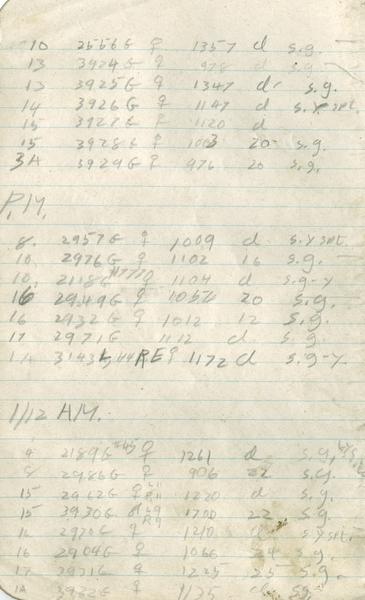 10 2556G ♀ 1357 d s.g. —
13 3924G ♀ 978 d s.g. —
13 3925G ♀ 1347 d s.g.
14 3926G ♀ 1147 d s.y spt.
15 3927G ♀ 1120 d
15 3928G ♀ 20 s.g.
3A 3929G ♀ 976 20 s.g.
P.M.
8 2957G ♀ 1009 d s.y spt.
10 2976G ♀ 1102 16 s.g. —
10 2118G ♀ 1104 d s.g-y
16 2949G ♀ 20 s.g. —
16 2932G ♀ 1012 12 s.g. —
17 2971G 1112 d s.g. —
1A 3143 RE ♀ 1172 d s.g-y.
1/12 A.M.
9 2189G ♀ 1261 d s.g,
8 2986G ♀ 906 22 s.g.
15 2962G ♀ 1220 d s.g.
15 3930G 1700 22 s.g.
2970G ♀ 1210 d s.y spt.
16 2904G ♀ 1066 24 s.g.
17 2931G ♀ 1225 25 s.g.
1A 3932G ♀ 1135 d s.g.